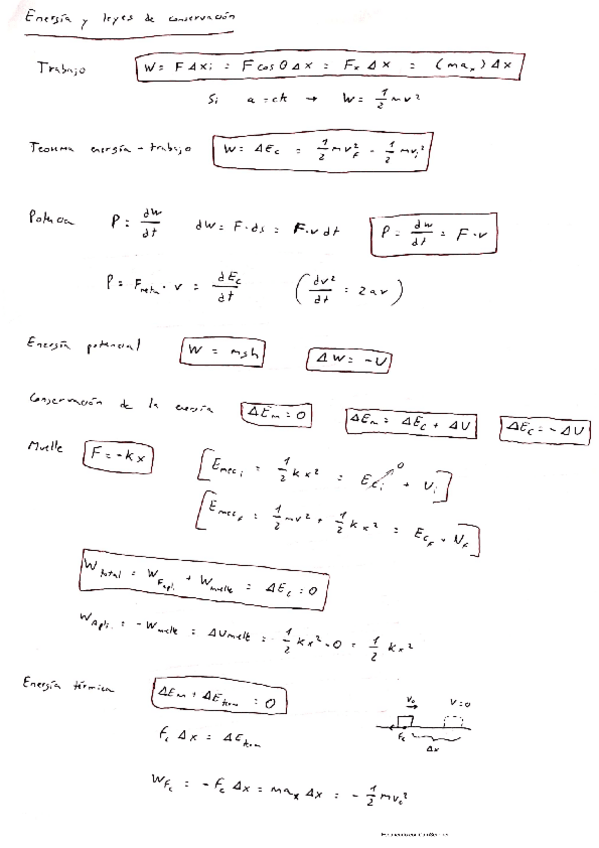 Energía y leyes de conservación
Trabajo W = F Δx_i = F cos θ Δx = F_x Δx = (ma_x) Δx
Si a = ctk → W = 1/2 mv²
Teorema energía - trabajo W = ΔE_c = 1/2 mv_f² - 1/2 mv_i²
Potencia P = dw/dt dw = F · ds = F · v dt P = dw/dt = F · v
P = F_neta · v = dE_c/dt (dv²/dt = 2av)
Energía potencial W = mgh ΔW = -U
Conservación de la energía ΔE_m = 0 ΔE_m = ΔE_c + ΔU ΔE_c = -ΔU
Muelle F = -kx [E_mec_i = 1/2 kx² = E_c_i 0 + U_i]
[E_mec_f = 1/2 mv² + 1/2 kx² = E_c_f + U_f]
W_total = W_F_apl. + W_muelle = ΔE_c = 0
W_apl. = -W_muelle = ΔU_muelle = 1/2 kx² - 0 = 1/2 kx²
Energía térmica ΔE_m + ΔE_term = 0
v_0 v=0
f_c Δx
f_c Δx = ΔE_term
W_f_c = -f_c Δx = ma_x Δx = -1/2 mv_0²